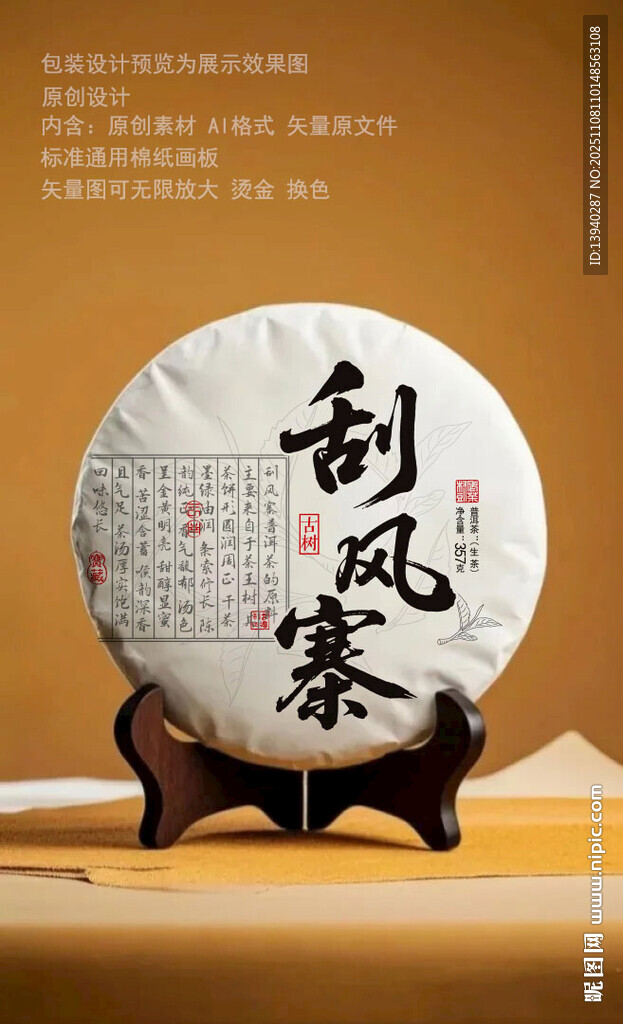 包装设计预览为展示效果图
原创设计
内含：原创素材 AI格式 矢量原文件
标准通用棉纸画板
矢量图可无限放大 烫金 换色
ID:13940287 NO:20251108110148563108
刮风寨
古树
普洱茶：（生茶）
净含量：357克
刮风寨普洱茶的原料
主要来自于茶王树
茶饼形圆润周正 干茶
墨绿油润 条索修长 陈
韵纯正 香气馥郁 汤色
呈金黄明亮 甜醇显蜜
香 苦涩含蓄 喉韵深香
且气足 茶汤厚实饱满
回味悠长
窝藏
昵图网 www.nipic.com